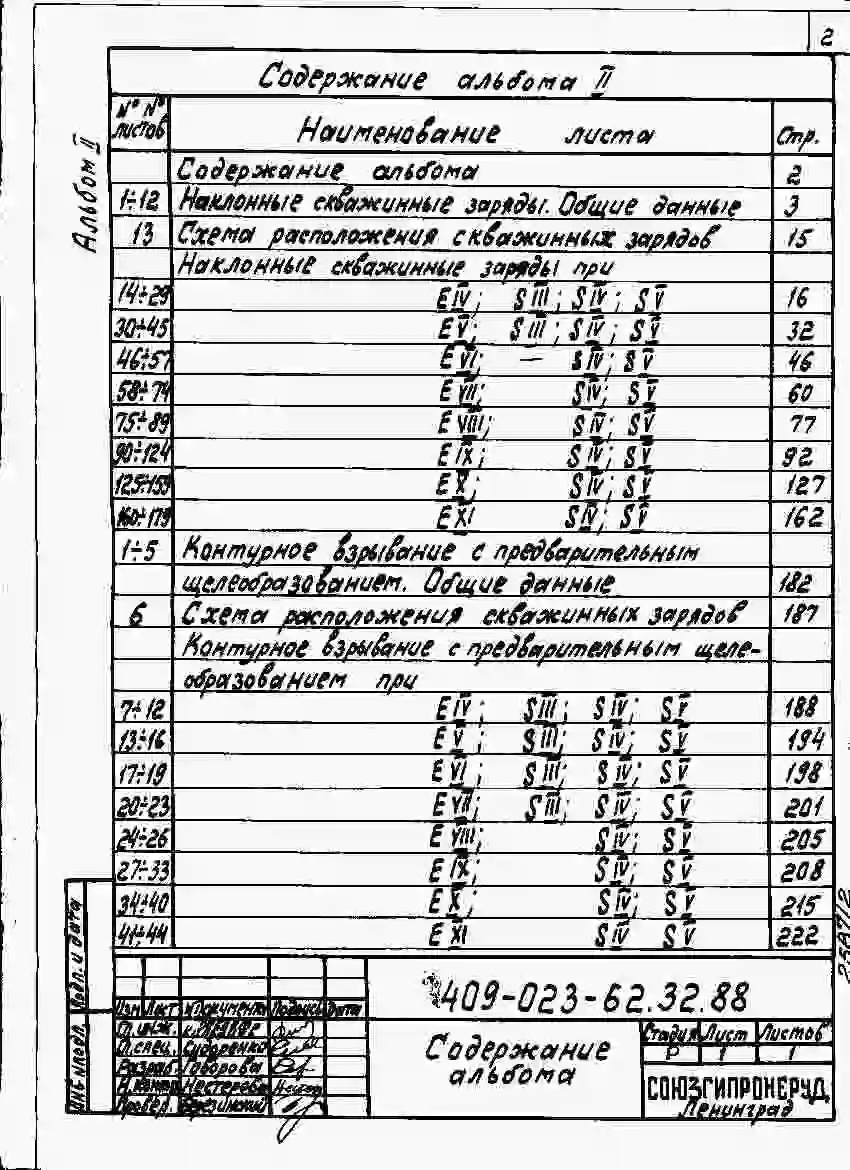 2
Содержание альбома II
Альбом II
№ № листов Наименование листа Стр.
Содержание альбома 2
1÷12 Наклонные скважинные заряды. Общие данные 3
13 Схема расположения скважинных зарядов 15
Наклонные скважинные заряды при
14÷29 E IV; S III; S IV; S V 16
30÷45 E V; S III; S IV; S V 32
46÷57 E VI; — S IV; S V 46
58÷74 E VII; S IV; S V 60
75÷89 E VIII; S IV; S V 77
90÷124 E IX; S IV; S V 92
125÷159 E X; S IV; S V 127
160÷179 E XI S IV; S V 162
1÷5 Контурное взрывание с предварительным
щелеобразованием. Общие данные 182
6 Схема расположения скважинных зарядов 187
Контурное взрывание с предварительным щеле-
образованием при
7÷12 E IV; S III; S IV; S V 188
13÷16 E V; S III; S IV; S V 194
17÷19 E VI; S III; S IV; S V 198
20÷23 E VII; S III; S IV; S V 201
24÷26 E VIII; S IV; S V 205
27÷33 E IX; S IV; S V 208
34÷40 E X; S IV; S V 215
41÷44 E XI S IV S V 222
409-023-62.32.88
Изм Лист № Документа Подпись Дата
Гл. инж.
Гл. спец. Сидоренко
Разраб. Говорова
Н. контр. Нестерева
Провер. Березинский
Содержание
альбома
Стадия Лист Листов
Р 1 1
СОЮЗГИПРОНЕРУД
Ленинград
Подп. и дата
Инв № подл.